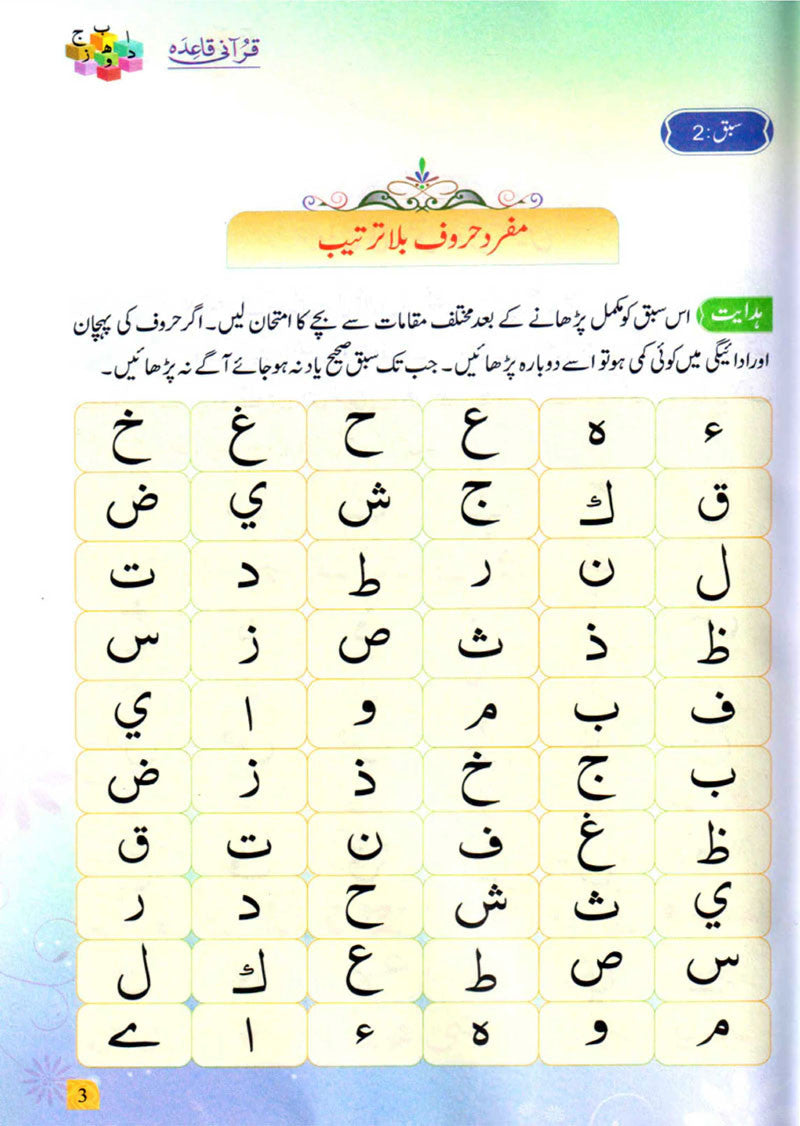 ا ب ج
د ه و ز
قرآنی قاعِدَہ
سبق : 2
مفرد حروف بلا ترتیب
ہدایت اس سبق کو مکمل پڑھانے کے بعد مختلف مقامات سے بچے کا امتحان لیں۔ اگر حروف کی پہچان
اور ادائیگی میں کوئی کمی ہو تو اسے دوبارہ پڑھائیں۔ جب تک سبق صحیح یاد نہ ہو جائے آگے نہ پڑھائیں۔
ء ه ع ح غ خ
ق ك ج ش ي ض
ل ن ر ط د ت
ظ ذ ث ص ز س
ف ب م و ا ي
ب ج خ ذ ز ض
ظ غ ف ن ت ق
ي ث ش ح د ر
س ص ط ع ك ل
م و ه ء ا ے
3